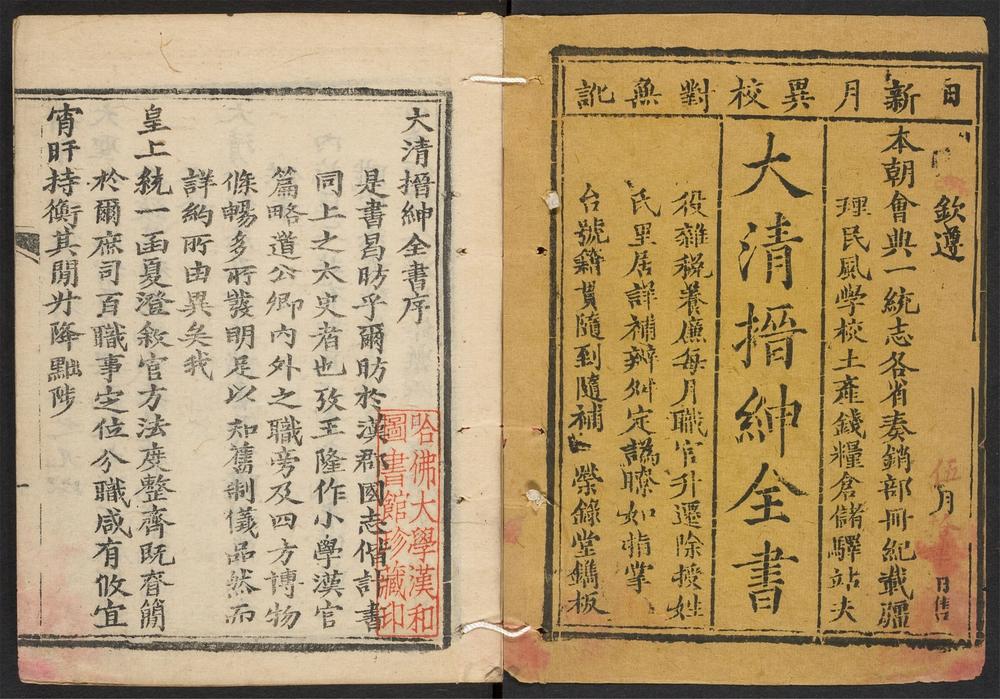 日新月異校對無訛
欽遵
本朝會典一統志各省奏銷部冊紀載疆
理民風學校土產錢糧倉儲驛站夫
伍月
日售
大清搢紳全書
役雜稅養廉每月職官升遷除授姓
氏里居詳補辨舛定譌瞭如指掌
台號籍貫隨到隨補
榮錄堂鐫板
大清搢紳全書序
是書昌昉乎爾昉於漢郡國志偕計書
同上之太史者也攷王隆作小學漢官
篇略道公卿內外之職旁及四方博物
條暢多所發明足以知舊制儀品然而
詳約所由異矣我
皇上統一函夏澄敘官方法度整齊既脊簡
於爾庶司百職事定位分職咸有攸宜
宵旰持衡其閒升降黜陟
哈佛大學漢和
圖書館珍藏印